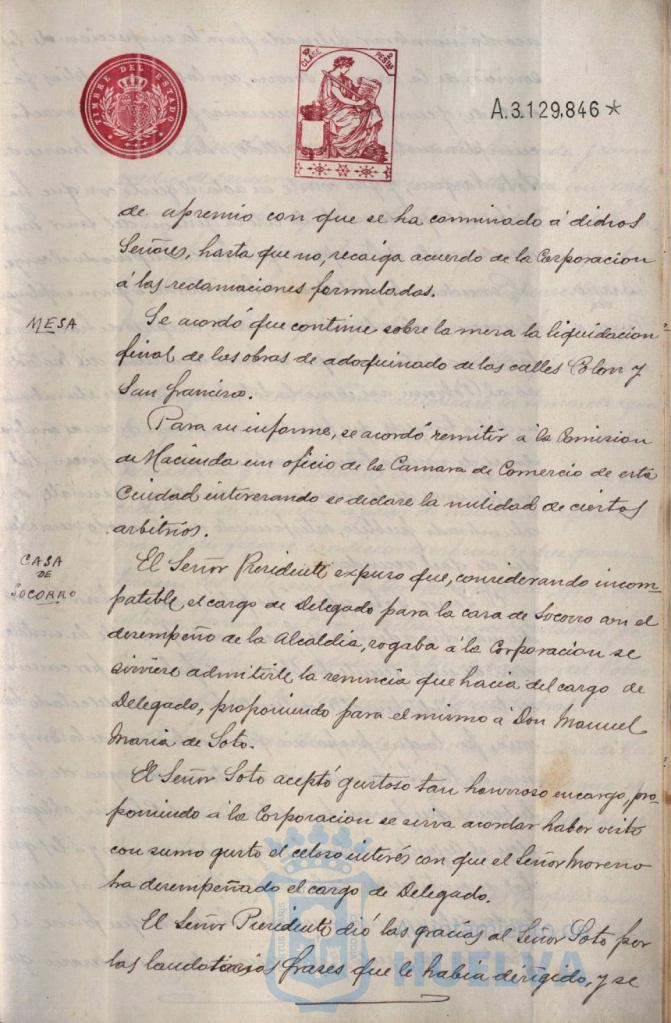 TIMBRE DEL ESTADO
CLASE
PESETA
A.3.129,846*
de apremio con que se ha conminado á dichos
Señores, hasta que no, recaiga acuerdo de la Corporacion
á las reclamaciones formuladas.
MESA
Se acordó que continue sobre la mesa la liquidacion
final de las obras de adoquinado de las calles Colon y
San Francisco.
Para su informe, se acordó remitir á la Comision
de Hacienda un oficio de la Camara de Comercio de esta
Ciudad interesando se declare la nulidad de ciertos
arbitrios.
CASA
DE
SOCORRO
El Señor Presidente expuso que, considerando incom-
patible, el cargo de Delegado para la casa de Socorro con el
desempeño de la Alcaldia, rogaba á la Corporacion se
sirviese admitirle la renuncia que hacia del cargo de
Delegado, proponiendo para el mismo á Don Manuel
Maria de Soto.
El Señor Soto aceptó gustoso tan honroso encargo, pro-
poniendo á la Corporacion se sirva acordar haber visto
con sumo gusto el celoso interés con que el Señor Moreno
ha desempeñado el cargo de Delegado.
El Señor Presidente dió las gracias al Señor Soto por
las laudatorias frases que le habia dirigido, y se
HUELVA